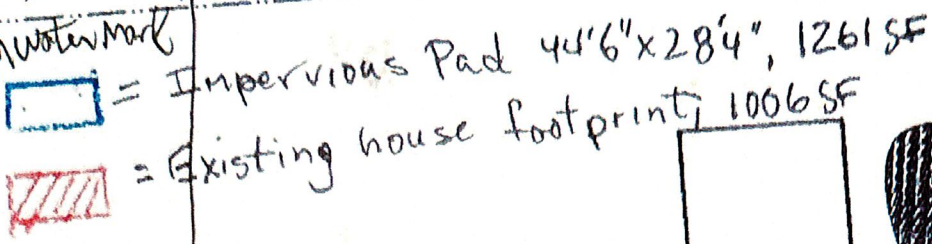 water mark
= Impervious Pad 44'6"x28'4", 1261 SF
= Existing house footprint, 1006 SF